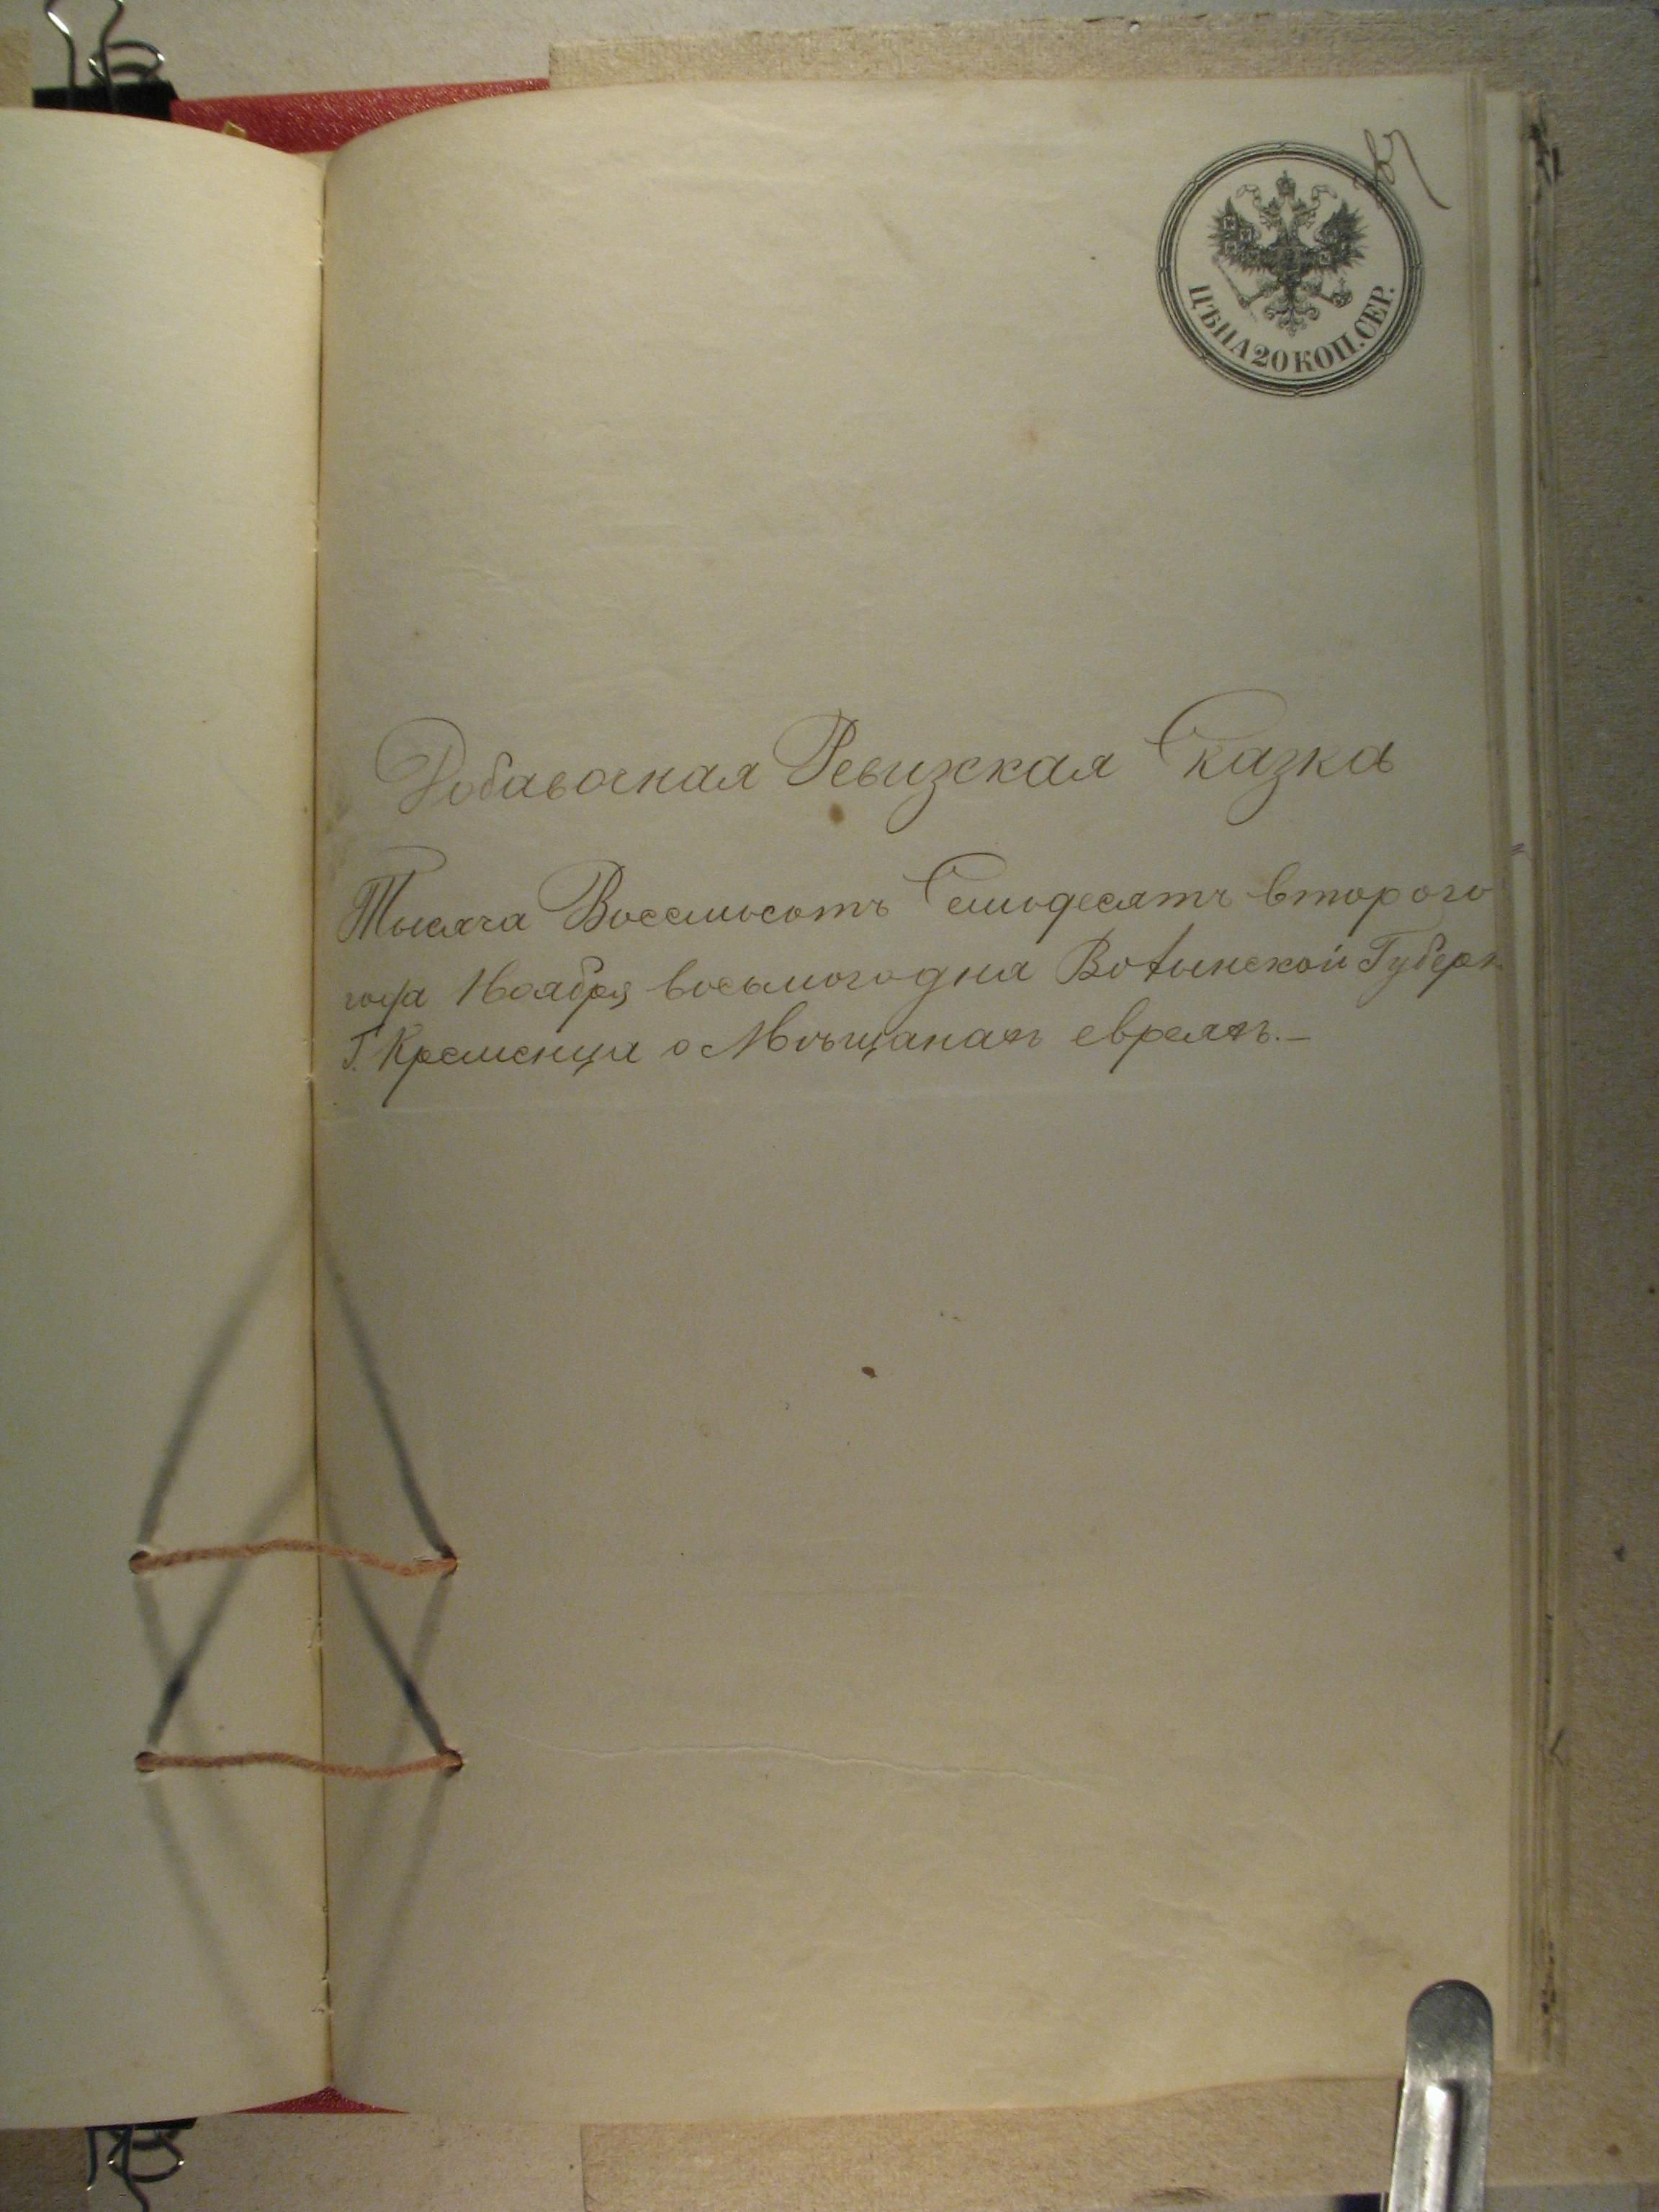 ЦѢНА 20 КОП. СЕР.
Добавочная Ревизкая Сказка
Тысяча Восемьсотъ Семдесятъ второго
года Ноября восьмого дня Волынской Губерн
Г. Кременца о Мѣщанахъ евреяхъ.—